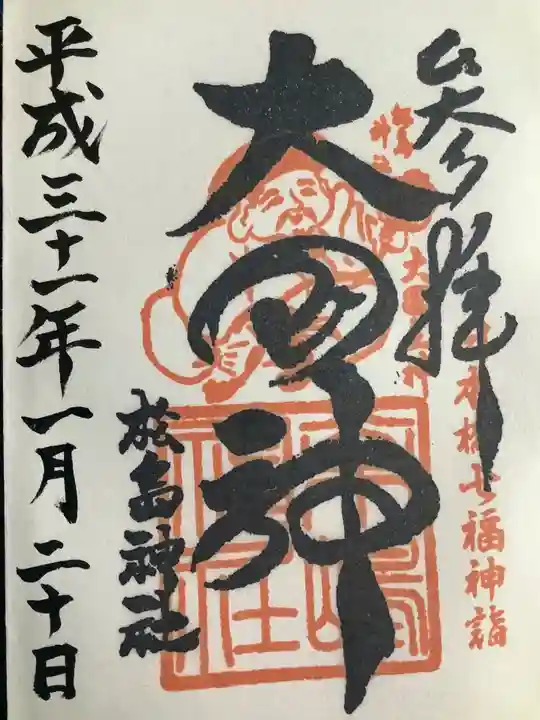 参拝
日本橋七福神詣
大国神
松島神社
平成三十一年一月二十日